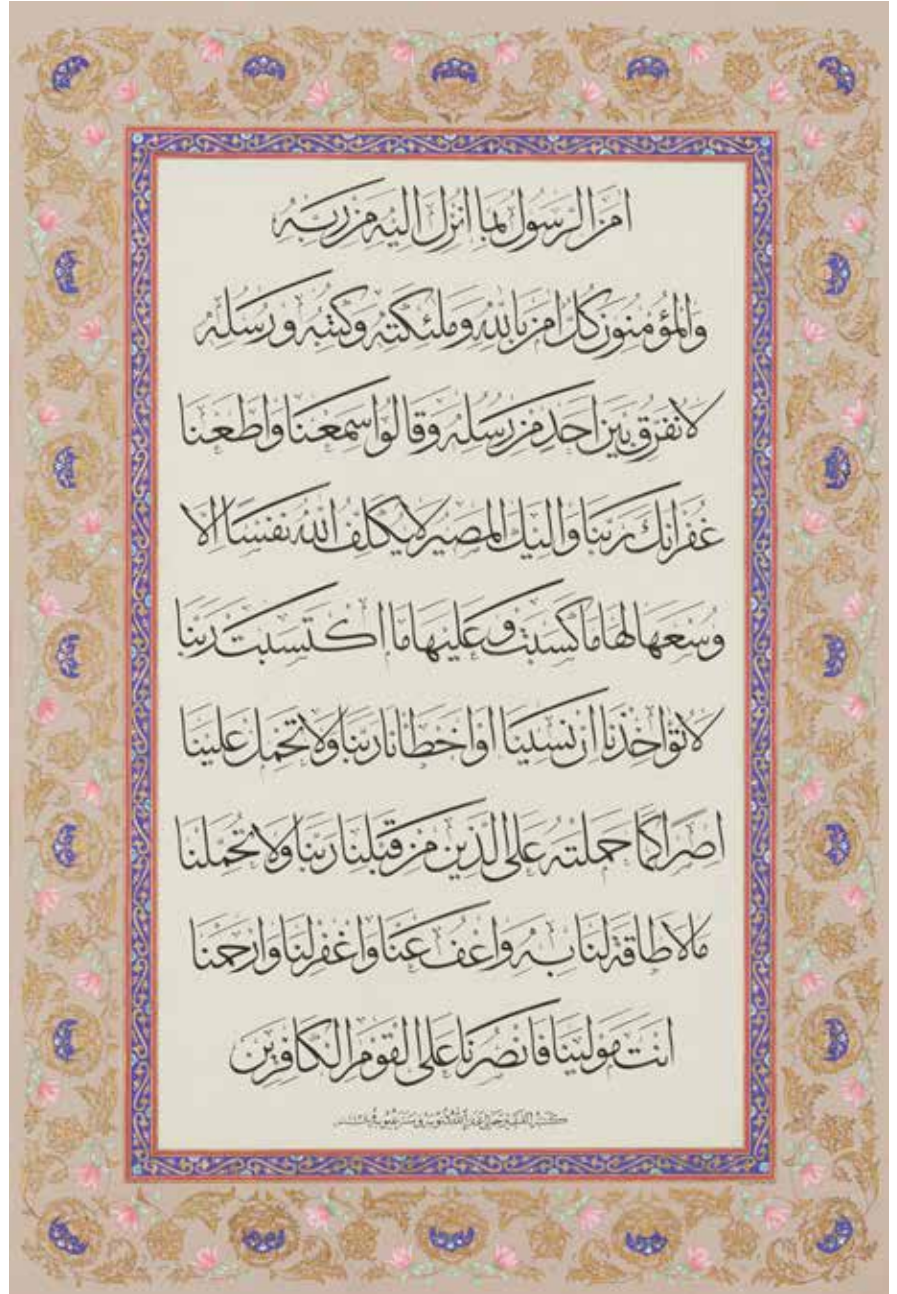 امن الرسول بما انزل اليه من ربه
والمؤمنون كل امن بالله وملئكته وكتبه ورسله
لا نفرق بين احد من رسله وقالوا سمعنا واطعنا
غفرانك ربنا واليك المصير لا يكلف الله نفسا الا
وسعها لها ما كسبت وعليها ما اكتسبت ربنا
لا تؤاخذنا ان نسينا او اخطانا ربنا ولا تحمل علينا
اصرا كما حملته على الذين من قبلنا ربنا ولا تحملنا
ما لا طاقة لنا به واعف عنا واغفر لنا وارحمنا
انت مولينا فانصرنا على القوم الكافرين
كتبه الفقير غفر الله ذنوبه وستر عيوبه